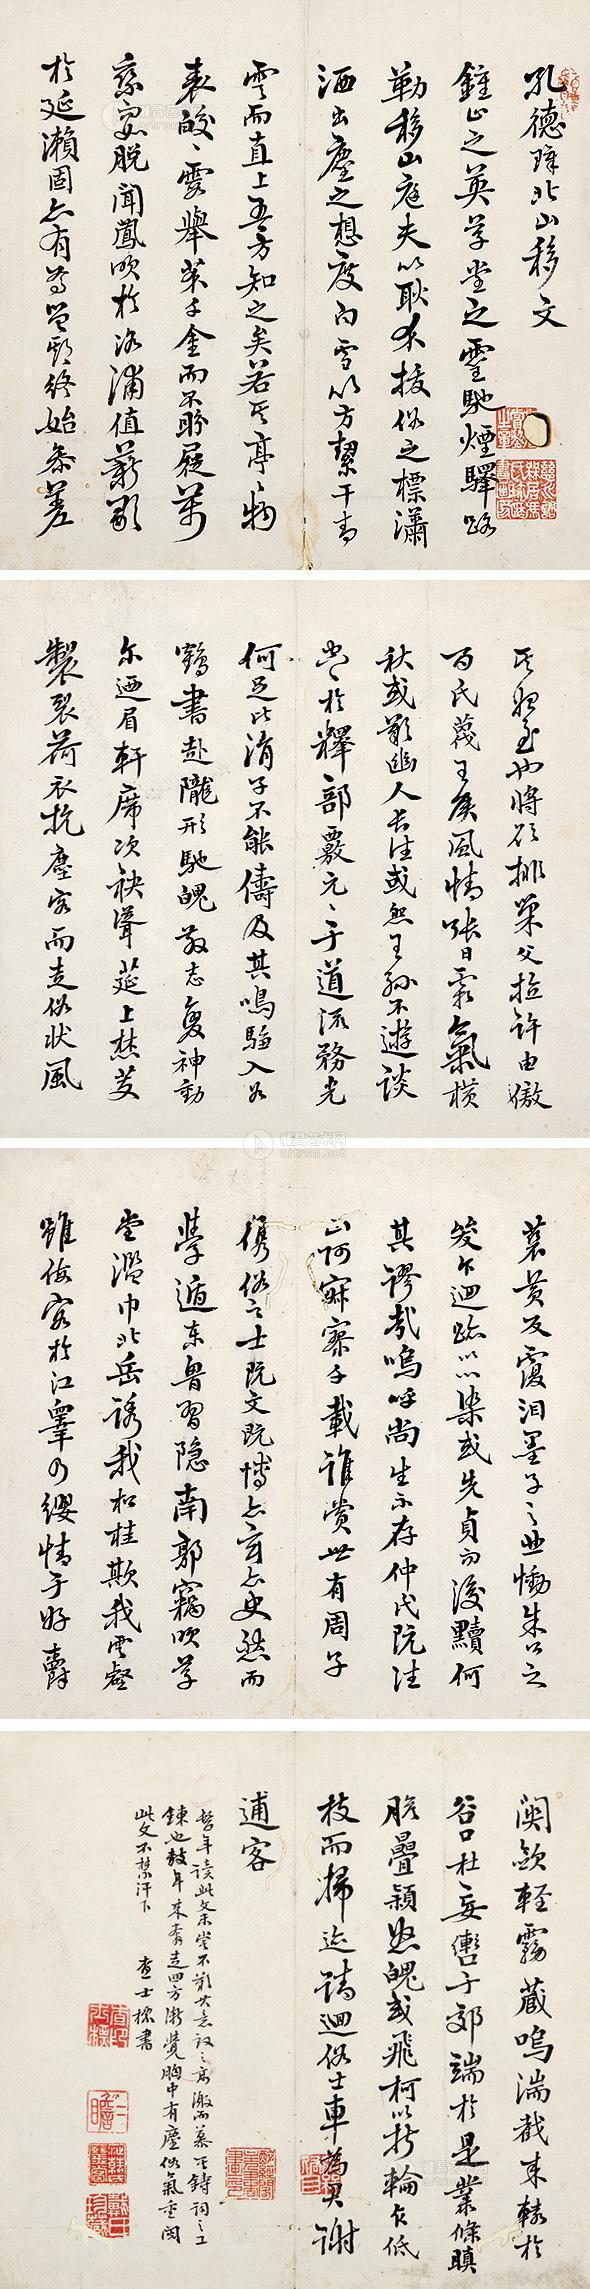 孔德璋北山移文
鍾山之英草堂之靈馳煙驛路
勒移山庭夫以耿介拔俗之標瀟
洒出塵之想度白雪以方絜干青
雲而直上吾方知之矣若其亭亭物
表皎皎霞舉芥千金而不盼屣萬
乘如脫聞鳳吹於洛浦值薪歌
於延瀨固亦有焉豈期終始參差
其始至也將欲排巢父拉許由傲
百氏蔑王侯風情張日霜氣橫
秋或歎幽人長往或怨王孫不遊談
空空於釋部覈元元于道流務光
何足比涓子不能儔及其鳴騶入谷
鶴書赴隴形馳魄散志變神動
尔迺眉軒席次袂聳筵上焚芰
製裂荷衣抗塵容而走俗狀風
蒼黃反覆淚墨子之悲慟朱公之
哭乍迴跡以心染或先貞而後黷何
其謬哉嗚呼尚生不存仲氏既往
山阿寂寥千載誰賞世有周子
儁俗之士既文既博亦玄亦史然而
學遁東魯習隱南郭竊吹草
堂濫巾北岳誘我松桂欺我雲壑
雖假容於江皋乃纓情于好爵
關斂輕霧藏鳴湍截來轅於
谷口杜妄轡于郊端於是叢條瞋
膽疊穎怒魄或飛柯以折輪乍低
枝而掃迹請迴俗士車為君謝
逋客
鍊也數年來奔走四方漸覺胸中有塵俗氣重閱
此文不禁汗下
查士標書
雅昌艺术网
artron.net